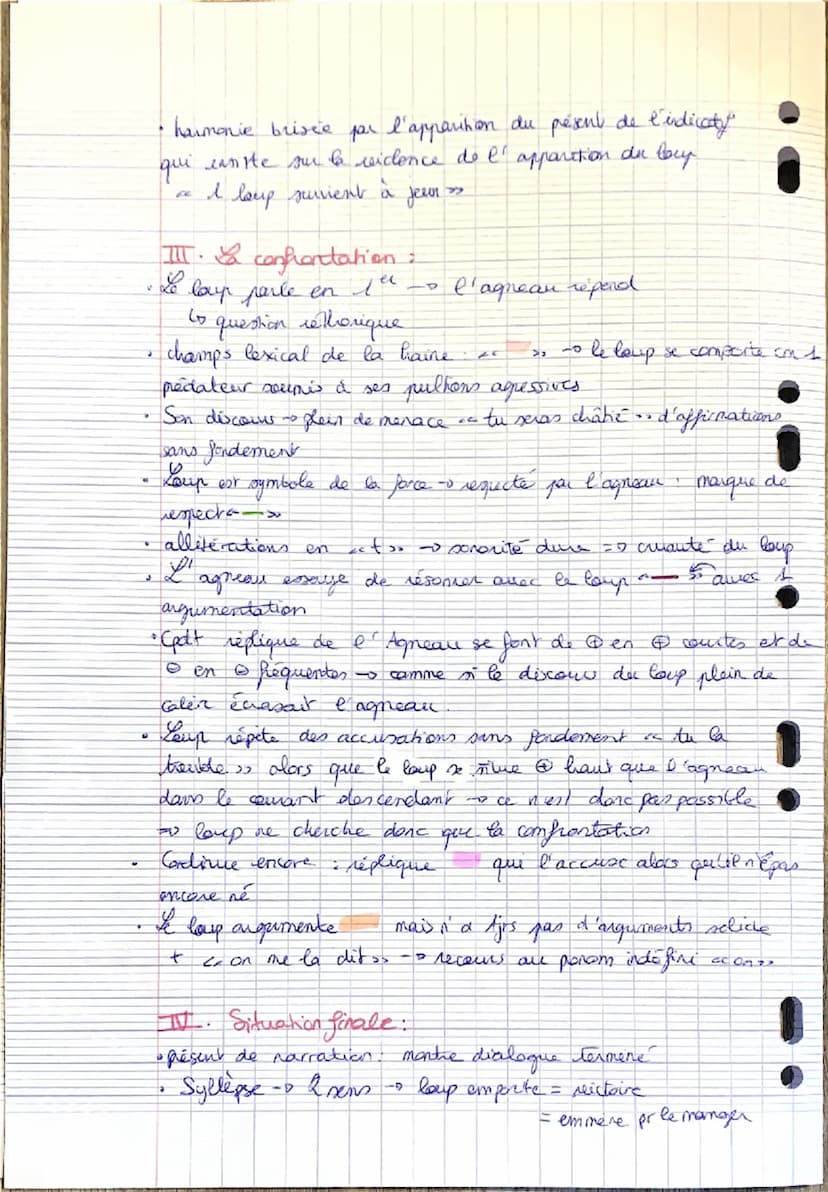 • harmonie brisée par l'apparition du présent de l'indicatif
qui insiste sur la violence de l'apparition du loup
« 1 loup survient à jeun »
III. La confrontation :
• Le loup parle en 1er → l'agneau répond
↳ question réthorique
• champs lexical de la haine : « » → le loup se comporte en 1
prédateur soumis à ses pultions agressives
• Son discours → plein de menace « tu seras châtié » d'affirmations
sans fondement
• Loup est symbole de la force → respecté par l'agneau : marque de
respect « — »
• allitérations en « t » → sonorité dure => cruauté du loup
• L'agneau essaye de résonner avec le loup « — » avec 1
argumentation
• Cpdt réplique de l'Agneau se font de ⊕ en ⊕ courtes et de
⊖ en ⊖ fréquentes → comme si le discours du loup plein de
colèr écrasait l'agneau.
• Loup répète des accusations sans fondement « tu la
trouble » alors que le loup se situe ⊕ haut que l'agneau
dans le courant descendant → ce n'est donc pas possible
=> loup ne cherche donc que la confrontation
• Continue encore : réplique qui l'accuse alors qu'il n'é pas
encore né
• Le loup argumente mais n'a tjrs pas d'arguments solide
+ « on me la dit » → recours au pronom indéfini « on »
IV. Situation finale :
• présent de narration : montre dialogue terminé
• Syllèpse → 2 sens → loup emporte = victoire
= emmène pr le manger